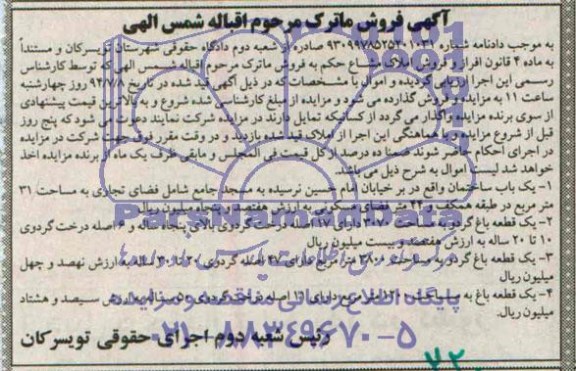 آگهی فروش ماترک مرحوم اقباله شمس الهی
به موجب دادنامه شماره ۹۳۰۹۹۷۸۵۲۵۳۰۱۰۳۱ صادره از شعبه دوم دادگاه حقوقی شهرستان تویسرکان و مستنداً
به ماده ۴ قانون افراز و فروش املاک مشاع حکم به فروش ماترک مرحوم اقباله شمس الهی که توسط کارشناس
رسمی این اجرا ارزیابی گردیده و اموال با مشخصات که در ذیل آگهی قید شده در تاریخ ۹۴/۷/۸ روز چهارشنبه
ساعت ۱۱ به مزایده و فروش گذارده می شود و مزایده از مبلغ کارشناسی شده شروع و به بالاترین قیمت پیشنهادی
از سوی برنده مزایده واگذار می گردد از کسانیکه تمایل دارند در مزایده شرکت نمایند دعوت می شود که پنج روز
قبل از شروع مزایده و با هماهنگی این اجرا از املاک قید شده بازدید و در وقت مقرر فوق جهت شرکت در مزایده
در اجرای احکام حاضر شوند ضمنا ده درصد از کل قیمت فی المجلس و مابقی ظرف یک ماه از برنده مزایده اخذ
خواهد شد لیست اموال به شرح ذیل می باشد.
۱- یک باب ساختمان واقع در بر خیابان امام حسین نرسیده به مسجد جامع شامل فضای تجاری به مساحت ۳۱
متر مربع در طبقه همکف و ۴۲ متر فضای مسکونی به ارزش هفتصد و پنجاه میلیون ریال.
۲- یک قطعه باغ گردو به مساحت ۳۰۷۰ دارای ۱۷ اصله درخت گردوی بالای پنجاه ساله و ۶ اصله درخت گردوی
۱۰ تا ۲۰ ساله به ارزش هفتصد و بیست میلیون ریال
۳- یک قطعه باغ گردو به مساحت ۳۸۰۶ متر مربع دارای ۴۷ اصله گردوی ۲۰ تا ۳۰ ساله به ارزش نهصد و چهل
میلیون ریال
۴- یک قطعه باغ به مساحت متر مربع دارای ۱۱ اصله درخت گردوی ۵۰ ساله به ارزش سیصد و هشتاد
میلیون ریال.
رئیس شعبه دوم اجرای حقوقی تویسرکان
ParsNamadData
پایگاه اطلاع رسانی مناقصه و مزایده
۰۲۱-۸۸۳۴۹۶۷۰-۵
۷۲۰